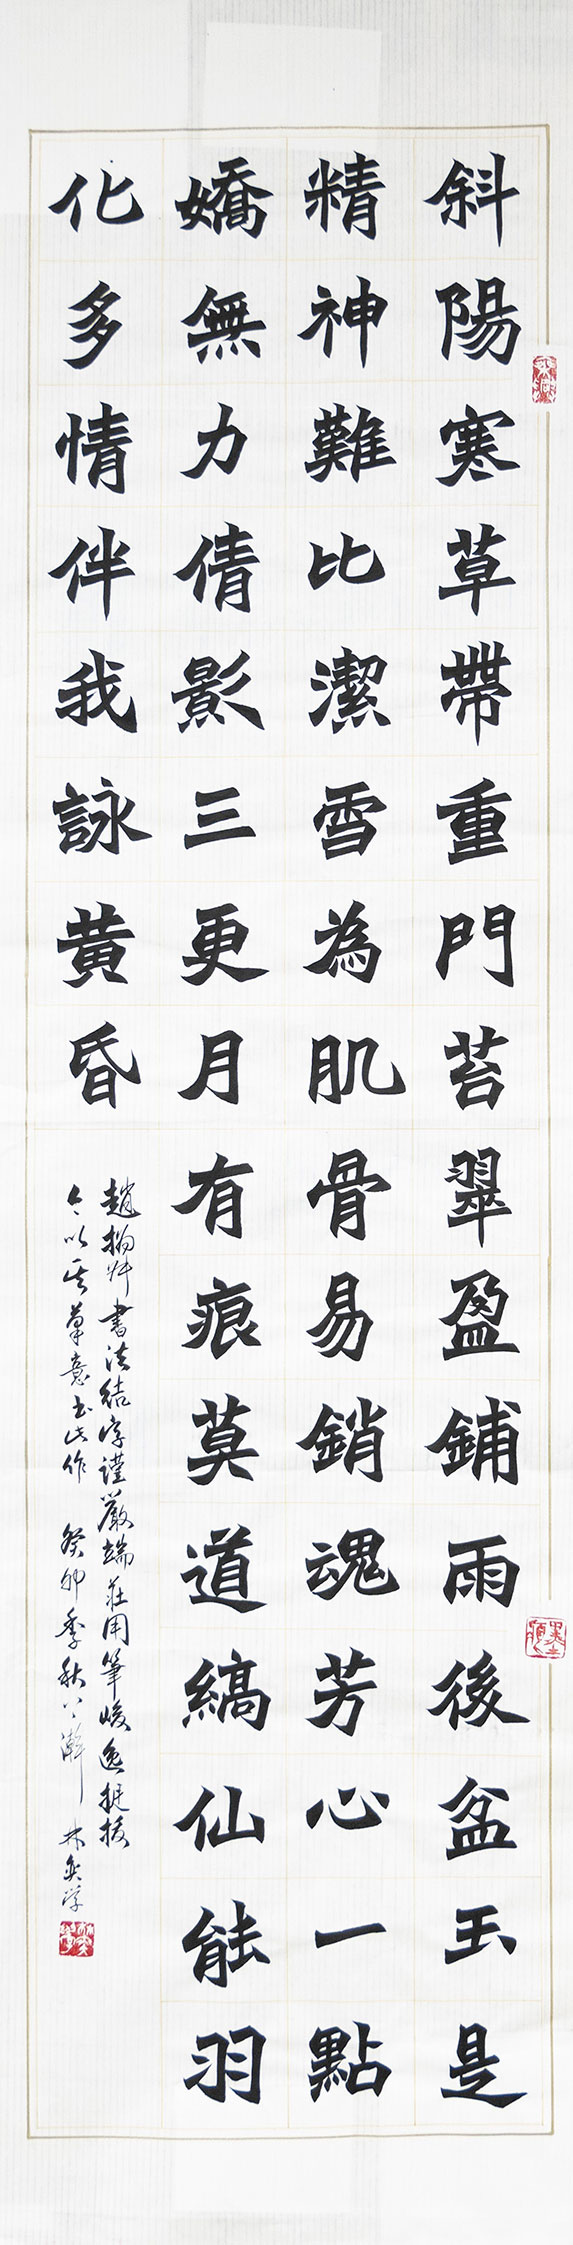 斜陽寒草帶重門苔翠盈鋪雨後盆玉是
精神難比潔雪為肌骨易銷魂芳心一點
嬌無力倩影三更月有痕莫道縞仙能羽
化多情伴我詠黃昏
趙撝叔書法結字謹嚴端莊用筆峻逸挺拔
今以其筆意書此作 癸卯季秋八澣 林奕学